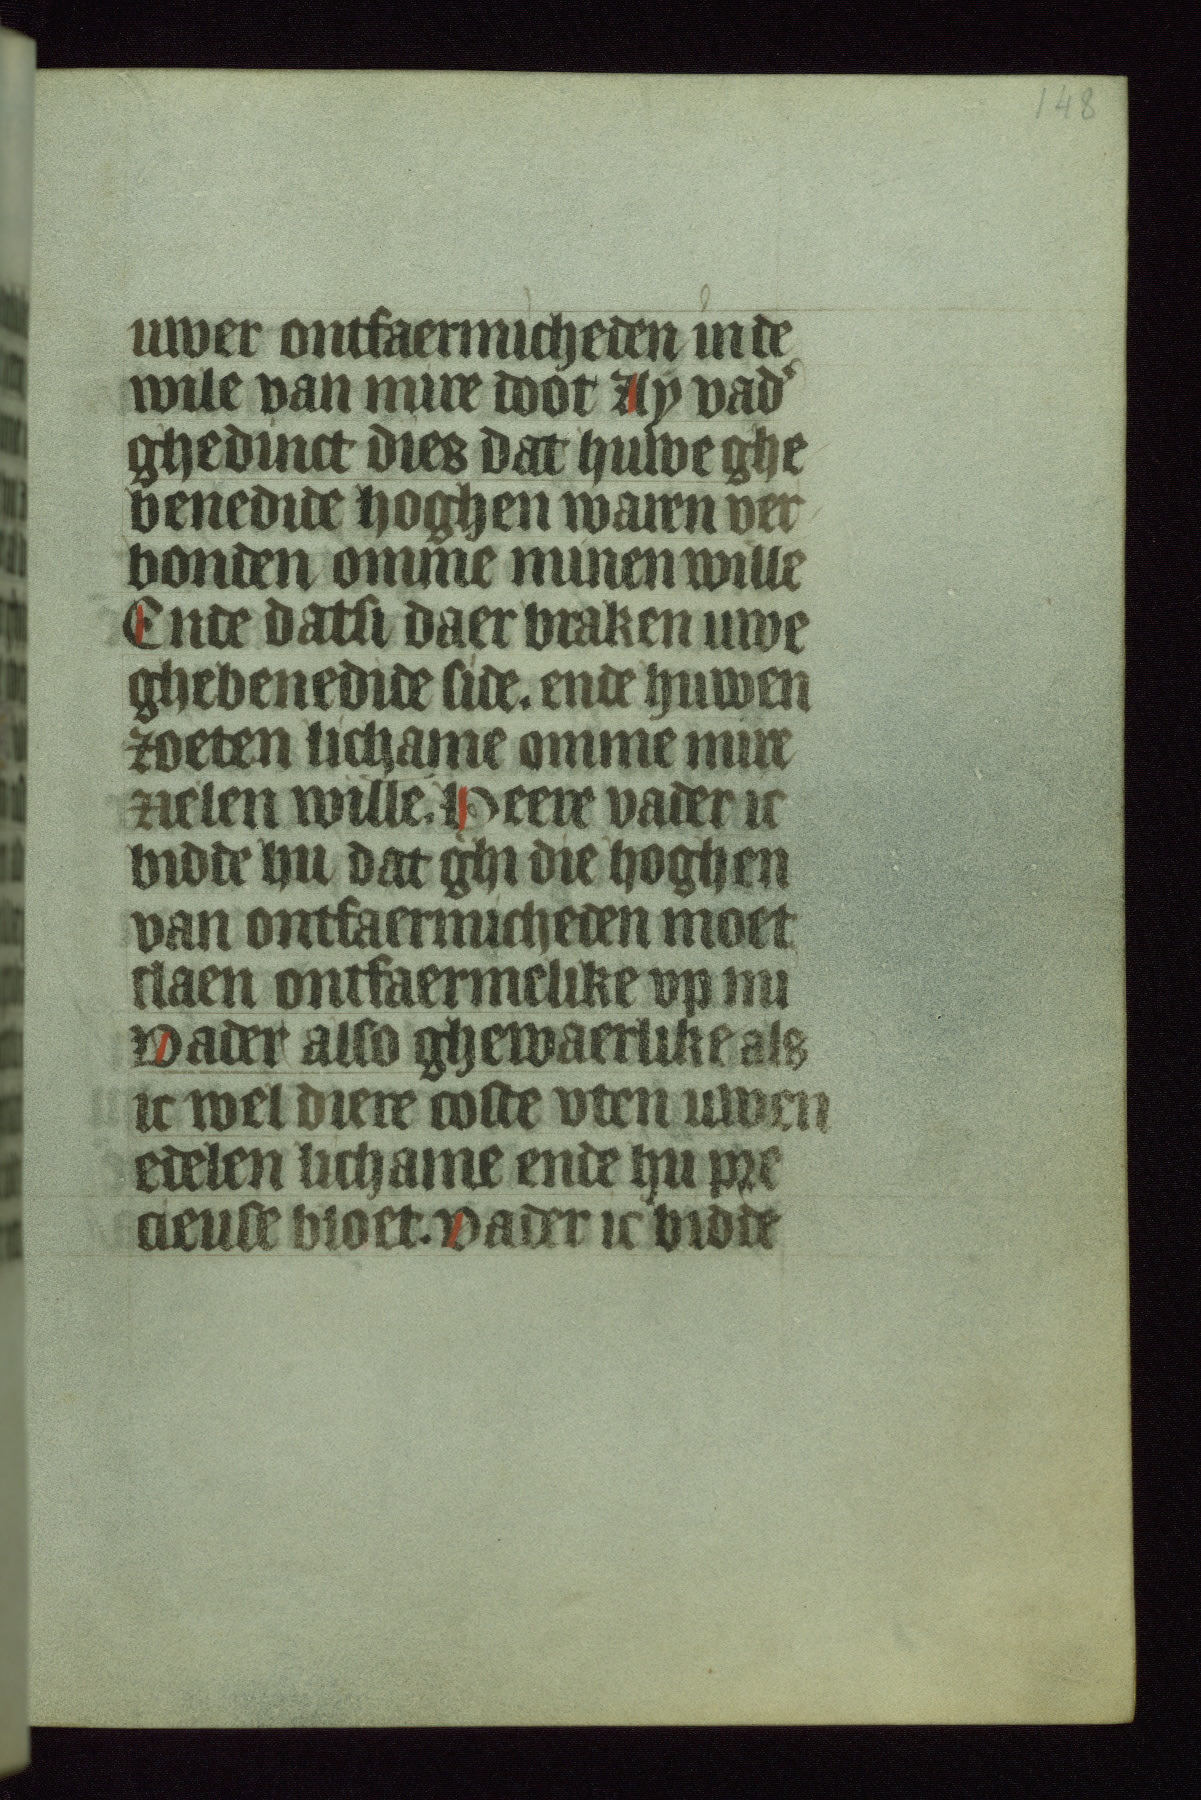 148
uwer ontfaermicheden in de
wile van mire doot Ay vad'
ghedinct dies dat huwe ghe
benedide hoghen waren ver
bonden omme minen wille
Ende datsi daer braken uwe
ghebenedide side. ende huwen
zoeten lichame omme mire
zielen wille. Heere vader ic
bidde hu dat ghi die hoghen
van ontfaermicheden moet
slaen ontfaermelike vp mi
Vader also ghewaerlike als
ic wel diere coste vten uwen
edelen lichame ende hu pre
cieuse bloet. Vader ic bidde